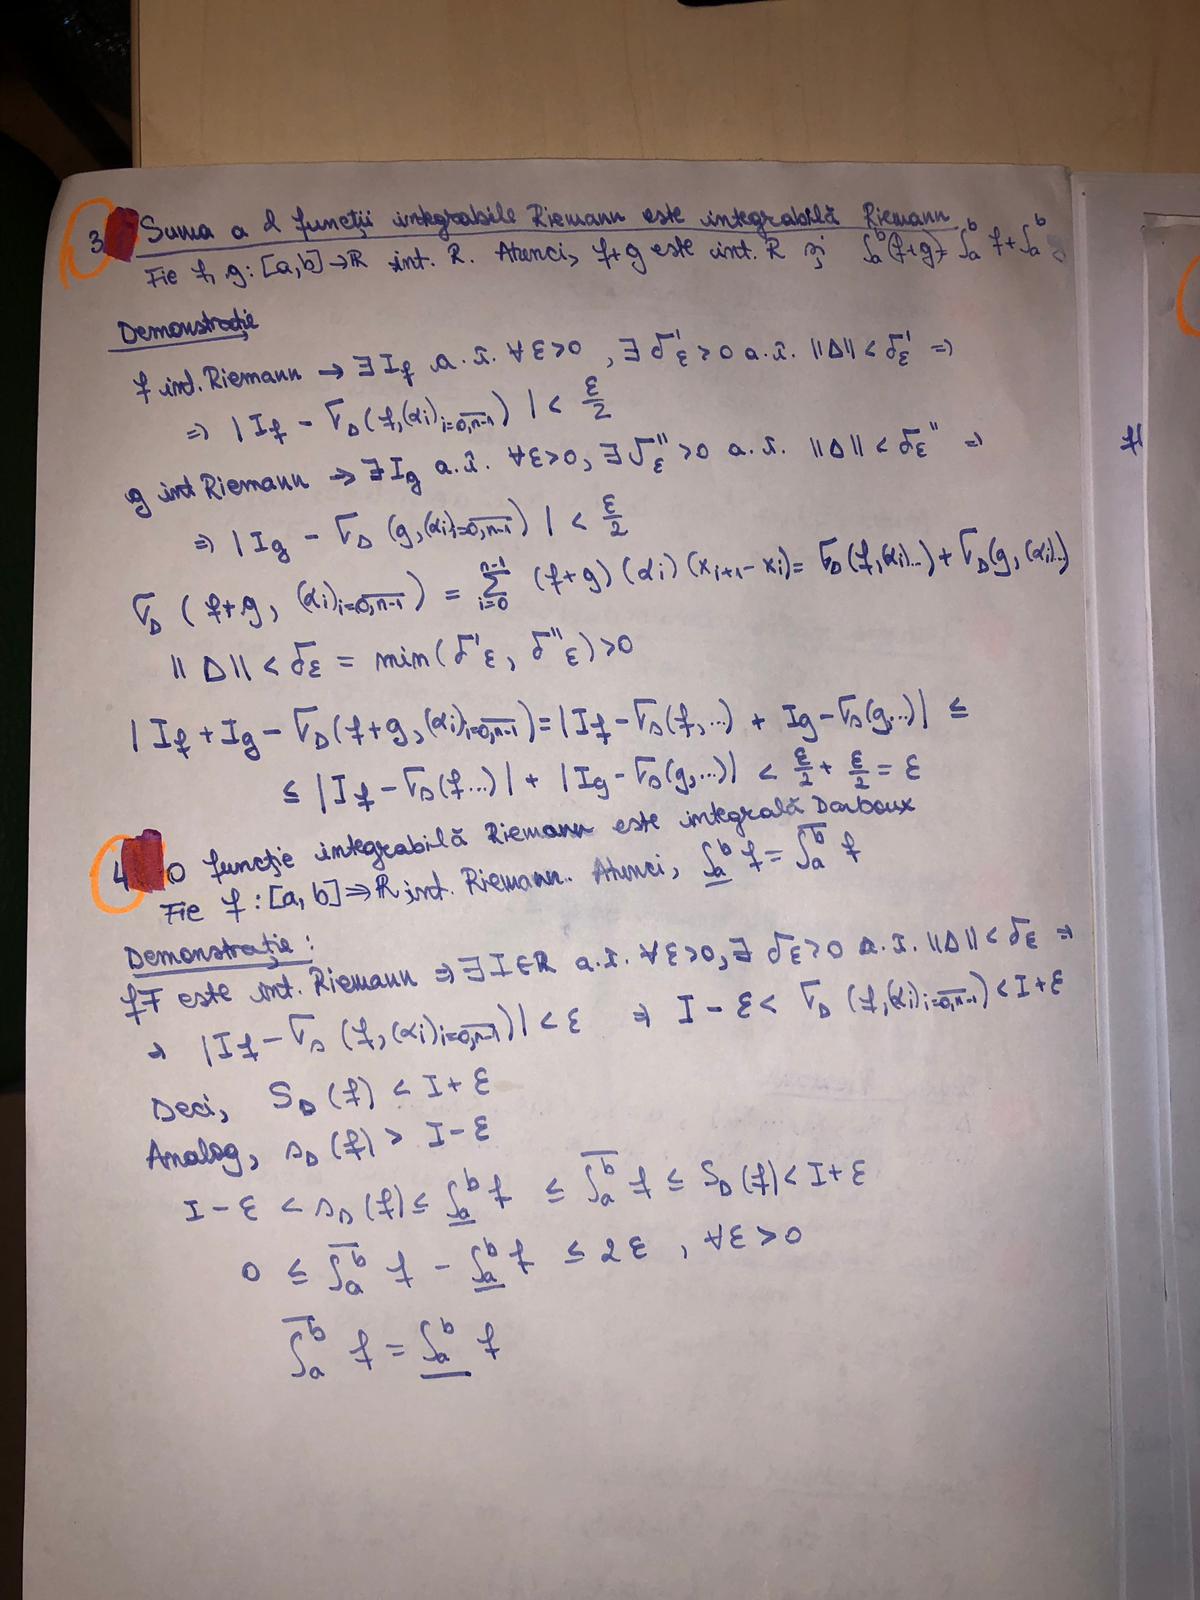 3 Suma a 2 funcții integrabile Riemann este integrabilă Riemann
Fie f, g : [a,b] → ℝ int. R. Atunci, f+g este int. R și ∫ₐᵇ(f+g) = ∫ₐᵇ f + ∫ₐᵇ g
Demonstrație
f int. Riemann → ∃ I_f a. î. ∀ε>0, ∃ δ'_ε > 0 a. î. ||Δ|| < δ'_ε ⇒
⇒ | I_f − σ_Δ (f, (αi)_{i=\overline{0,n-1}}) | < ε/2
g int Riemann → ∃ I_g a. î. ∀ε>0, ∃ δ''_ε > 0 a. î. ||Δ|| < δ''_ε ⇒
⇒ | I_g − σ_Δ (g, (αi)_{i=\overline{0,n-1}}) | < ε/2
σ_Δ (f+g, (αi)_{i=\overline{0,n-1}}) = ∑_{i=0}^{n-1} (f+g)(αi)(x_{i+1} − x_i) = σ_Δ(f,(αi)...) + σ_Δ(g,(αi)...)
||Δ|| < δ_ε = min(δ'_ε, δ''_ε) > 0
| I_f + I_g − σ_Δ(f+g, (αi)_{i=\overline{0,n-1}}) = | I_f − σ_Δ(f,...) + I_g − σ_Δ(g,...) | ≤
≤ | I_f − σ_Δ(f...) | + | I_g − σ_Δ(g,...) | < ε/2 + ε/2 = ε
4 O funcție integrabilă Riemann este integrală Darboux
Fie f : [a,b] → ℝ int. Riemann. Atunci, \underline{∫}ₐᵇ f = \overline{∫}ₐᵇ f
Demonstrație :
f este int. Riemann ⇒ ∃ I ∈ ℝ a. î. ∀ε>0, ∃ δ_ε>0 a. î. ||Δ|| < δ_ε ⇒
⇒ | I_f − σ_Δ (f, (αi)_{i=\overline{0,n-1}}) | < ε ⇒ I − ε < σ_Δ (f, (αi)_{i=\overline{0,n-1}}) < I + ε
Deci, S_Δ (f) < I + ε
Analog, s_Δ (f) > I − ε
I − ε < s_Δ (f) ≤ \underline{∫}ₐᵇ f ≤ \overline{∫}ₐᵇ f ≤ S_Δ (f) < I + ε
0 ≤ \overline{∫}ₐᵇ f − \underline{∫}ₐᵇ f ≤ 2ε, ∀ε > 0
\overline{∫}ₐᵇ f = \underline{∫}ₐᵇ f